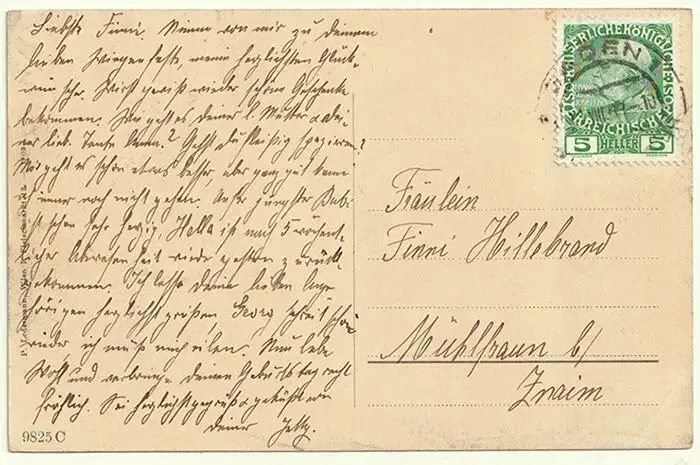 Liebste Finni, Nimm von mir zu Deinem
lieben Wiegenfeste, meine herzlichsten Glück-
wünsche. Wirst gewiß wieder schöne Geschenke
bekommen. Wie geht es Deiner l. Mutter & Dei-
ner lieb. Tante Anna? Gehst Du fleißig spazieren?
Mir geht es schon etwas besser, aber ganz gut kann
immer noch nicht gehen. Unser jüngster Bubi
ist schon sehr herzig, Hella ist nach 5 wöchent-
licher Abwesenheit wieder gestern zurück-
gekommen. Ich lasse Deine lieben Ange-
hörigen herzlichst grüßen, Georg schreit schon
wieder ich muß mich eilen. Nun lebe
Wohl und verbringe Deinen Geburtstag recht
fröhlich. Sei herzlichst gegrüßt & geküßt von
Deiner
9825 C
BADEN
KAISERLICHEKÖNIGLICHE
ÖSTERREICHISCHE POST
5 HELLER 5
Fräulein
Finni Hillebrand
Mühlfraun b/
Znaim